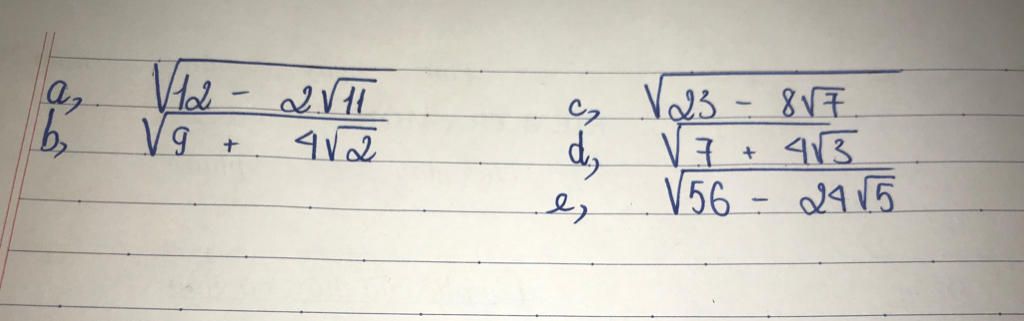 a, √12 - 2√11
b, √9 + 4√2
c, √23 - 8√7
d, √7 + 4√3
e, √56 - 24√5